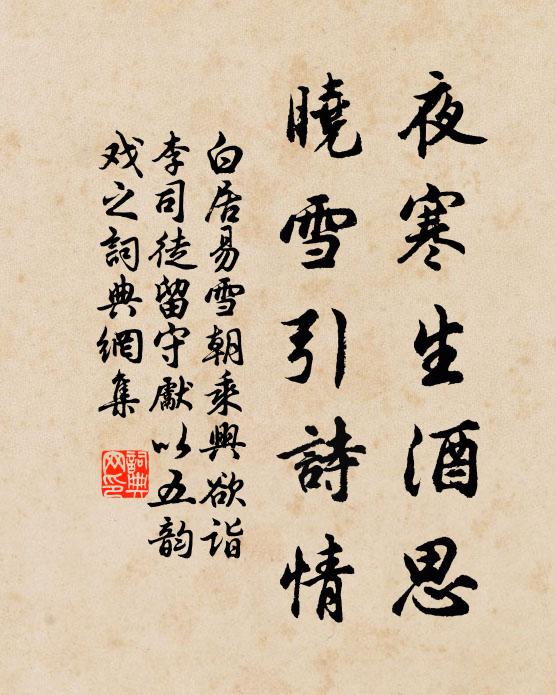 夜寒生酒思
曉雪引詩情
白居易雪朝乘興欲詣
李司徒留守獻以五韵
戏之詞典網集
詞典网印